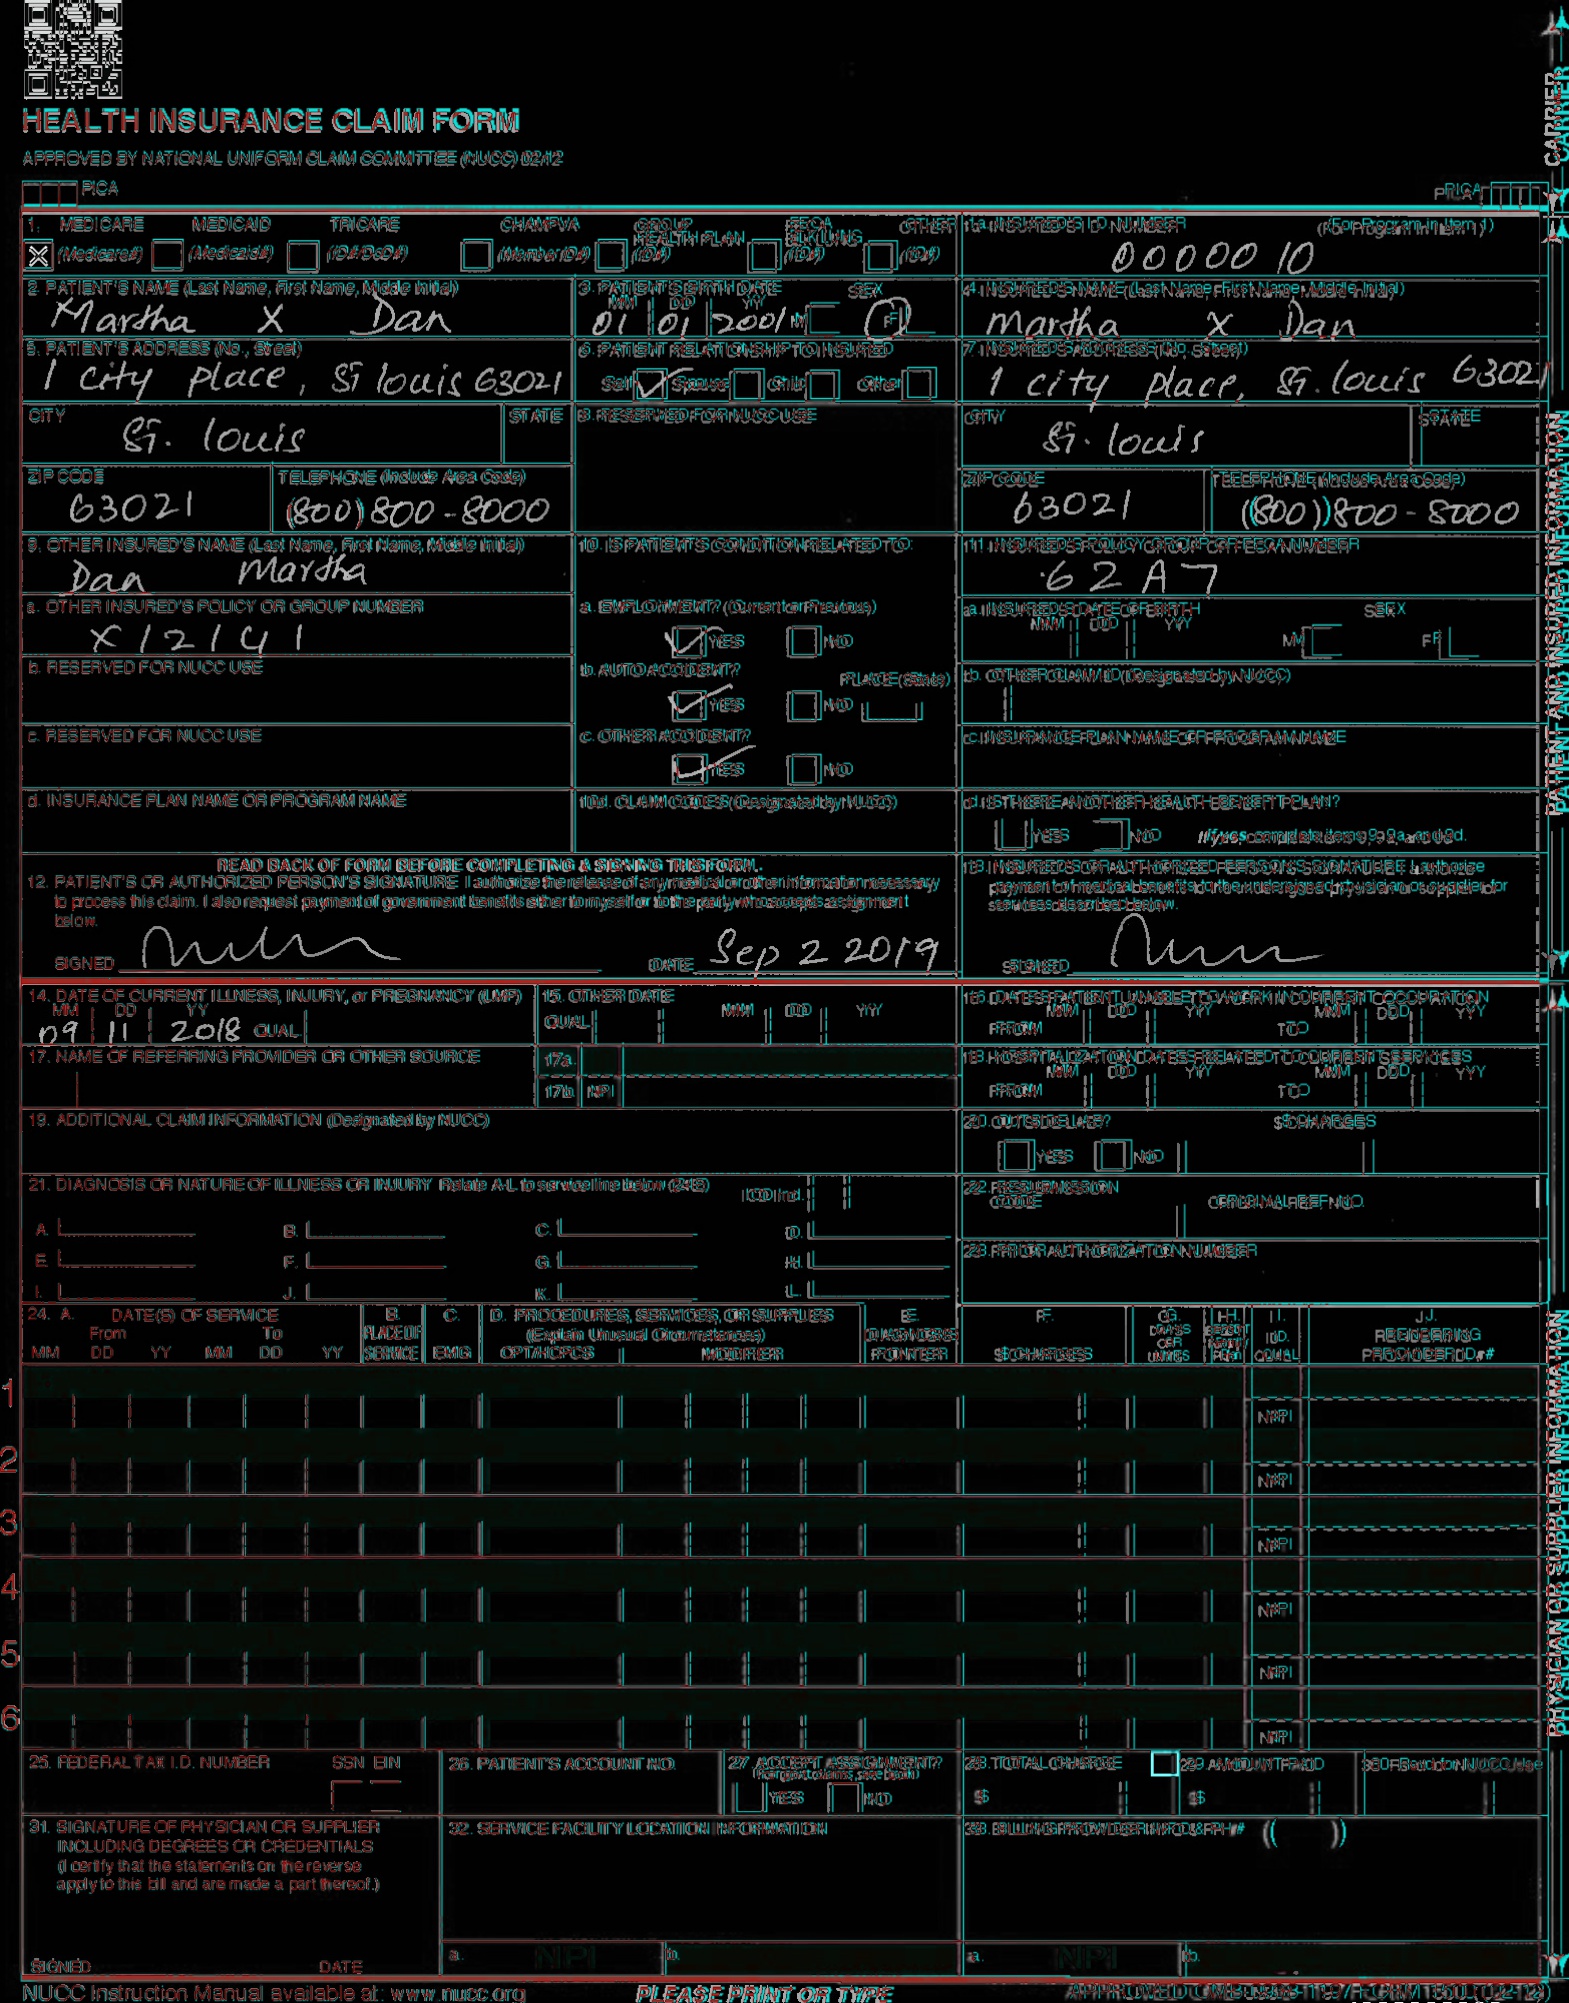 HEALTH INSURANCE CLAIM FORM
APPROVED BY NATIONAL UNIFORM CLAIM COMMITTEE (NUCC) 02/12
PICA
PICA
CARRIER
1. MEDICARE MEDICAID TRICARE CHAMPVA GROUP HEALTH PLAN FECA BLK LUNG OTHER
(Medicare#) (Medicaid#) (ID#/DoD#) (Member ID#) (ID#) (ID#) (ID#)
1a. INSURED'S I.D. NUMBER (For Program in Item 1)
0000010
2. PATIENT'S NAME (Last Name, First Name, Middle Initial)
Martha X Dan
3. PATIENT'S BIRTH DATE SEX
MM DD YY
01 01 2001 M F
4. INSURED'S NAME (Last Name, First Name, Middle Initial)
Martha X Dan
5. PATIENT'S ADDRESS (No., Street)
1 city place, St louis 63021
6. PATIENT RELATIONSHIP TO INSURED
Self Spouse Child Other
7. INSURED'S ADDRESS (No., Street)
1 city place, St. louis 63021
CITY STATE
St. louis
8. RESERVED FOR NUCC USE
CITY STATE
St. louis
ZIP CODE TELEPHONE (Include Area Code)
63021 (800) 800-8000
ZIP CODE TELEPHONE (Include Area Code)
63021 (800) 800-8000
9. OTHER INSURED'S NAME (Last Name, First Name, Middle Initial)
Dan Martha
10. IS PATIENT'S CONDITION RELATED TO:
11. INSURED'S POLICY GROUP OR FECA NUMBER
62A7
a. OTHER INSURED'S POLICY OR GROUP NUMBER
X12141
a. EMPLOYMENT? (Current or Previous)
YES NO
a. INSURED'S DATE OF BIRTH SEX
MM DD YY M F
b. RESERVED FOR NUCC USE
b. AUTO ACCIDENT? PLACE (State)
YES NO
b. OTHER CLAIM ID (Designated by NUCC)
c. RESERVED FOR NUCC USE
c. OTHER ACCIDENT?
YES NO
c. INSURANCE PLAN NAME OR PROGRAM NAME
d. INSURANCE PLAN NAME OR PROGRAM NAME
10d. CLAIM CODES (Designated by NUCC)
d. IS THERE ANOTHER HEALTH BENEFIT PLAN?
YES NO If yes, complete items 9, 9a, and 9d.
READ BACK OF FORM BEFORE COMPLETING & SIGNING THIS FORM.
12. PATIENT'S OR AUTHORIZED PERSON'S SIGNATURE I authorize the release of any medical or other information necessary
to process this claim. I also request payment of government benefits either to myself or to the party who accepts assignment
below.
SIGNED DATE Sep 2 2019
13. INSURED'S OR AUTHORIZED PERSON'S SIGNATURE I authorize
payment of medical benefits to the undersigned physician or supplier for
services described below.
SIGNED
PATIENT AND INSURED INFORMATION
14. DATE OF CURRENT ILLNESS, INJURY, or PREGNANCY (LMP)
MM DD YY
09 11 2018 QUAL.
15. OTHER DATE
QUAL. MM DD YY
16. DATES PATIENT UNABLE TO WORK IN CURRENT OCCUPATION
MM DD YY MM DD YY
FROM TO
17. NAME OF REFERRING PROVIDER OR OTHER SOURCE
17a.
17b. NPI
18. HOSPITALIZATION DATES RELATED TO CURRENT SERVICES
MM DD YY MM DD YY
FROM TO
19. ADDITIONAL CLAIM INFORMATION (Designated by NUCC)
20. OUTSIDE LAB? $ CHARGES
YES NO
21. DIAGNOSIS OR NATURE OF ILLNESS OR INJURY Relate A-L to service line below (24E)
ICD Ind.
A. B. C. D.
E. F. G. H.
I. J. K. L.
22. RESUBMISSION CODE ORIGINAL REF. NO.
23. PRIOR AUTHORIZATION NUMBER
24. A. DATE(S) OF SERVICE
From To
MM DD YY MM DD YY
B. PLACE OF SERVICE
C. EMG
D. PROCEDURES, SERVICES, OR SUPPLIES
(Explain Unusual Circumstances)
CPT/HCPCS MODIFIER
E. DIAGNOSIS POINTER
F. $ CHARGES
G. DAYS OR UNITS
H. EPSDT Family Plan
I. ID. QUAL.
J. RENDERING PROVIDER ID. #
1 NPI
2 NPI
3 NPI
4 NPI
5 NPI
6 NPI
25. FEDERAL TAX I.D. NUMBER SSN EIN
26. PATIENT'S ACCOUNT NO.
27. ACCEPT ASSIGNMENT?
(For govt. claims, see back)
YES NO
28. TOTAL CHARGE
$
29. AMOUNT PAID
$
30. Rsvd for NUCC Use
31. SIGNATURE OF PHYSICIAN OR SUPPLIER
INCLUDING DEGREES OR CREDENTIALS
(I certify that the statements on the reverse
apply to this bill and are made a part thereof.)
SIGNED DATE
32. SERVICE FACILITY LOCATION INFORMATION
a. NPI b.
33. BILLING PROVIDER INFO & PH # ( )
a. NPI b.
PHYSICIAN OR SUPPLIER INFORMATION
NUCC Instruction Manual available at: www.nucc.org
PLEASE PRINT OR TYPE
APPROVED OMB-0938-1197 FORM 1500 (02-12)